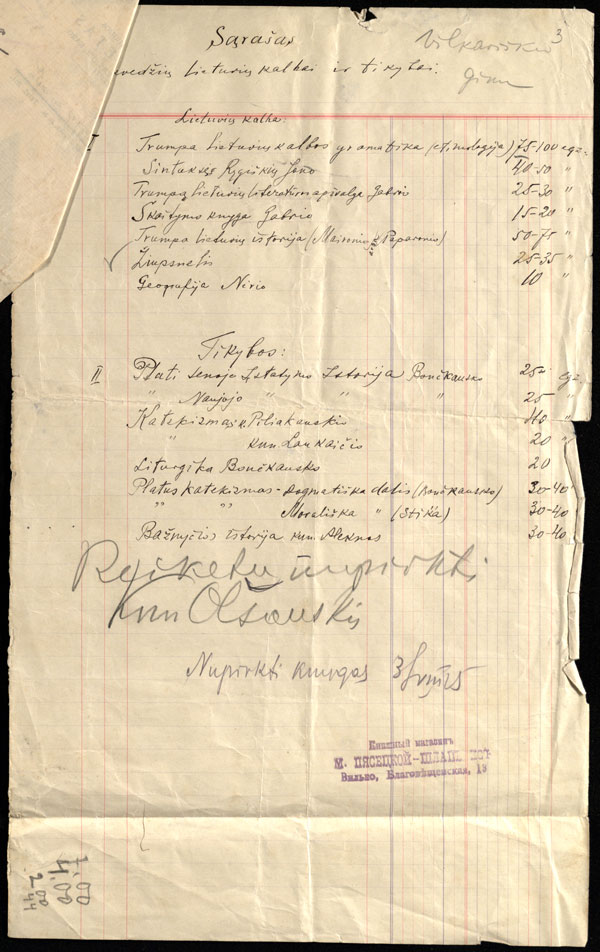 Sąrašas
3
Vilkaviškio
vedžių Lietuvių kalbai ir tikybai.
Lietuvių kalba:
I Trumpa Lietuvių kalbos gramatika (etimologija) 75-100 egz.
Sintaksė Rygiškių Jono 40-50 "
Trumpa Lietuvių literatūros apžvalga Gabrio 25-30 "
Skaitymo knyga Gabrio 15-20 "
Trumpa Lietuvių istorija (Maironio Paparonio) 50-75 "
Žiupsnelis 25-35 "
Geografija Nirio 10 "
Tikybos:
II Plati senojo Įstatymo Istorija Bončkausko 25 egz.
" Naujojo " " " 25 "
Katekizmas k. Piliakauskio 40 "
" kun. Laukaičio 20 "
Liturgika Bončkausko 20
Platus katekizmas - dogmatiška dalis (Bončkausko) 30-40
" " Morališka " (Stika) 30-40
Bažnyčios istorija kun. Aleknos 30-40
nupirkti
Kun Olšauskis
Nupirkti knygas
Книжный магазинъ
М. ПЯСЕЦКОЙ-
Вильно, Благовѣщенская, 19
7.00
4.00
2.00
44